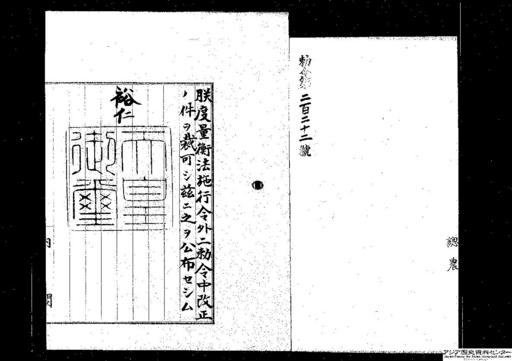 勅令第二百二十二號
總農
朕度量衡法施行令外二勅令中改正
ノ件ヲ裁可シ茲ニ之ヲ公布セシム
裕仁
天皇御璽
内閣
アジア歴史資料センター